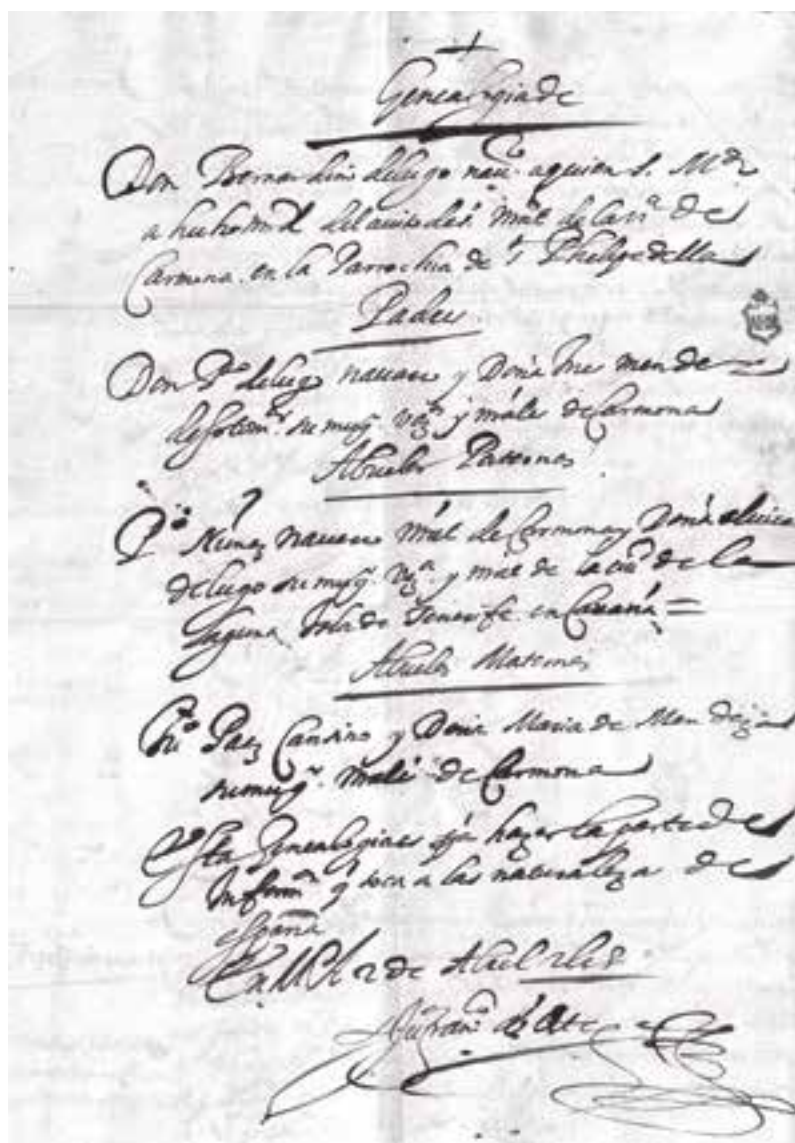 Genealogia de
Don Bernardino de lugo nau.º a quien S. M.d
a hecho md del auito de s.
Carmona. en la Parrochia de S. Phelipe della
Padres
Don P.º de lugo nauarro y Doña Ines mende
su mug.r y nāle de Carmona
Abuelos Paternos
P.º Nuñez nauarro nāl de Carmona y Doña eluira
de lugo su mug.r y nāl de la ciu.d de la
laguna Isla de Tenerife en Canaria
Abuelos Maternos
Paez Cansino y Doña Maria de Mendez
su mug.r nāle de Carmona
Esta Genealogia es p.a hazer la parte de
Inform.on q toca a las naturalezas de
españa
En M.d 2 de Abril